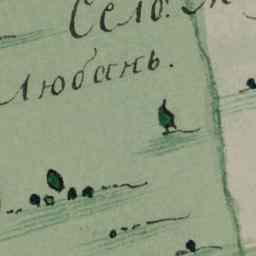 Село.
Любань.